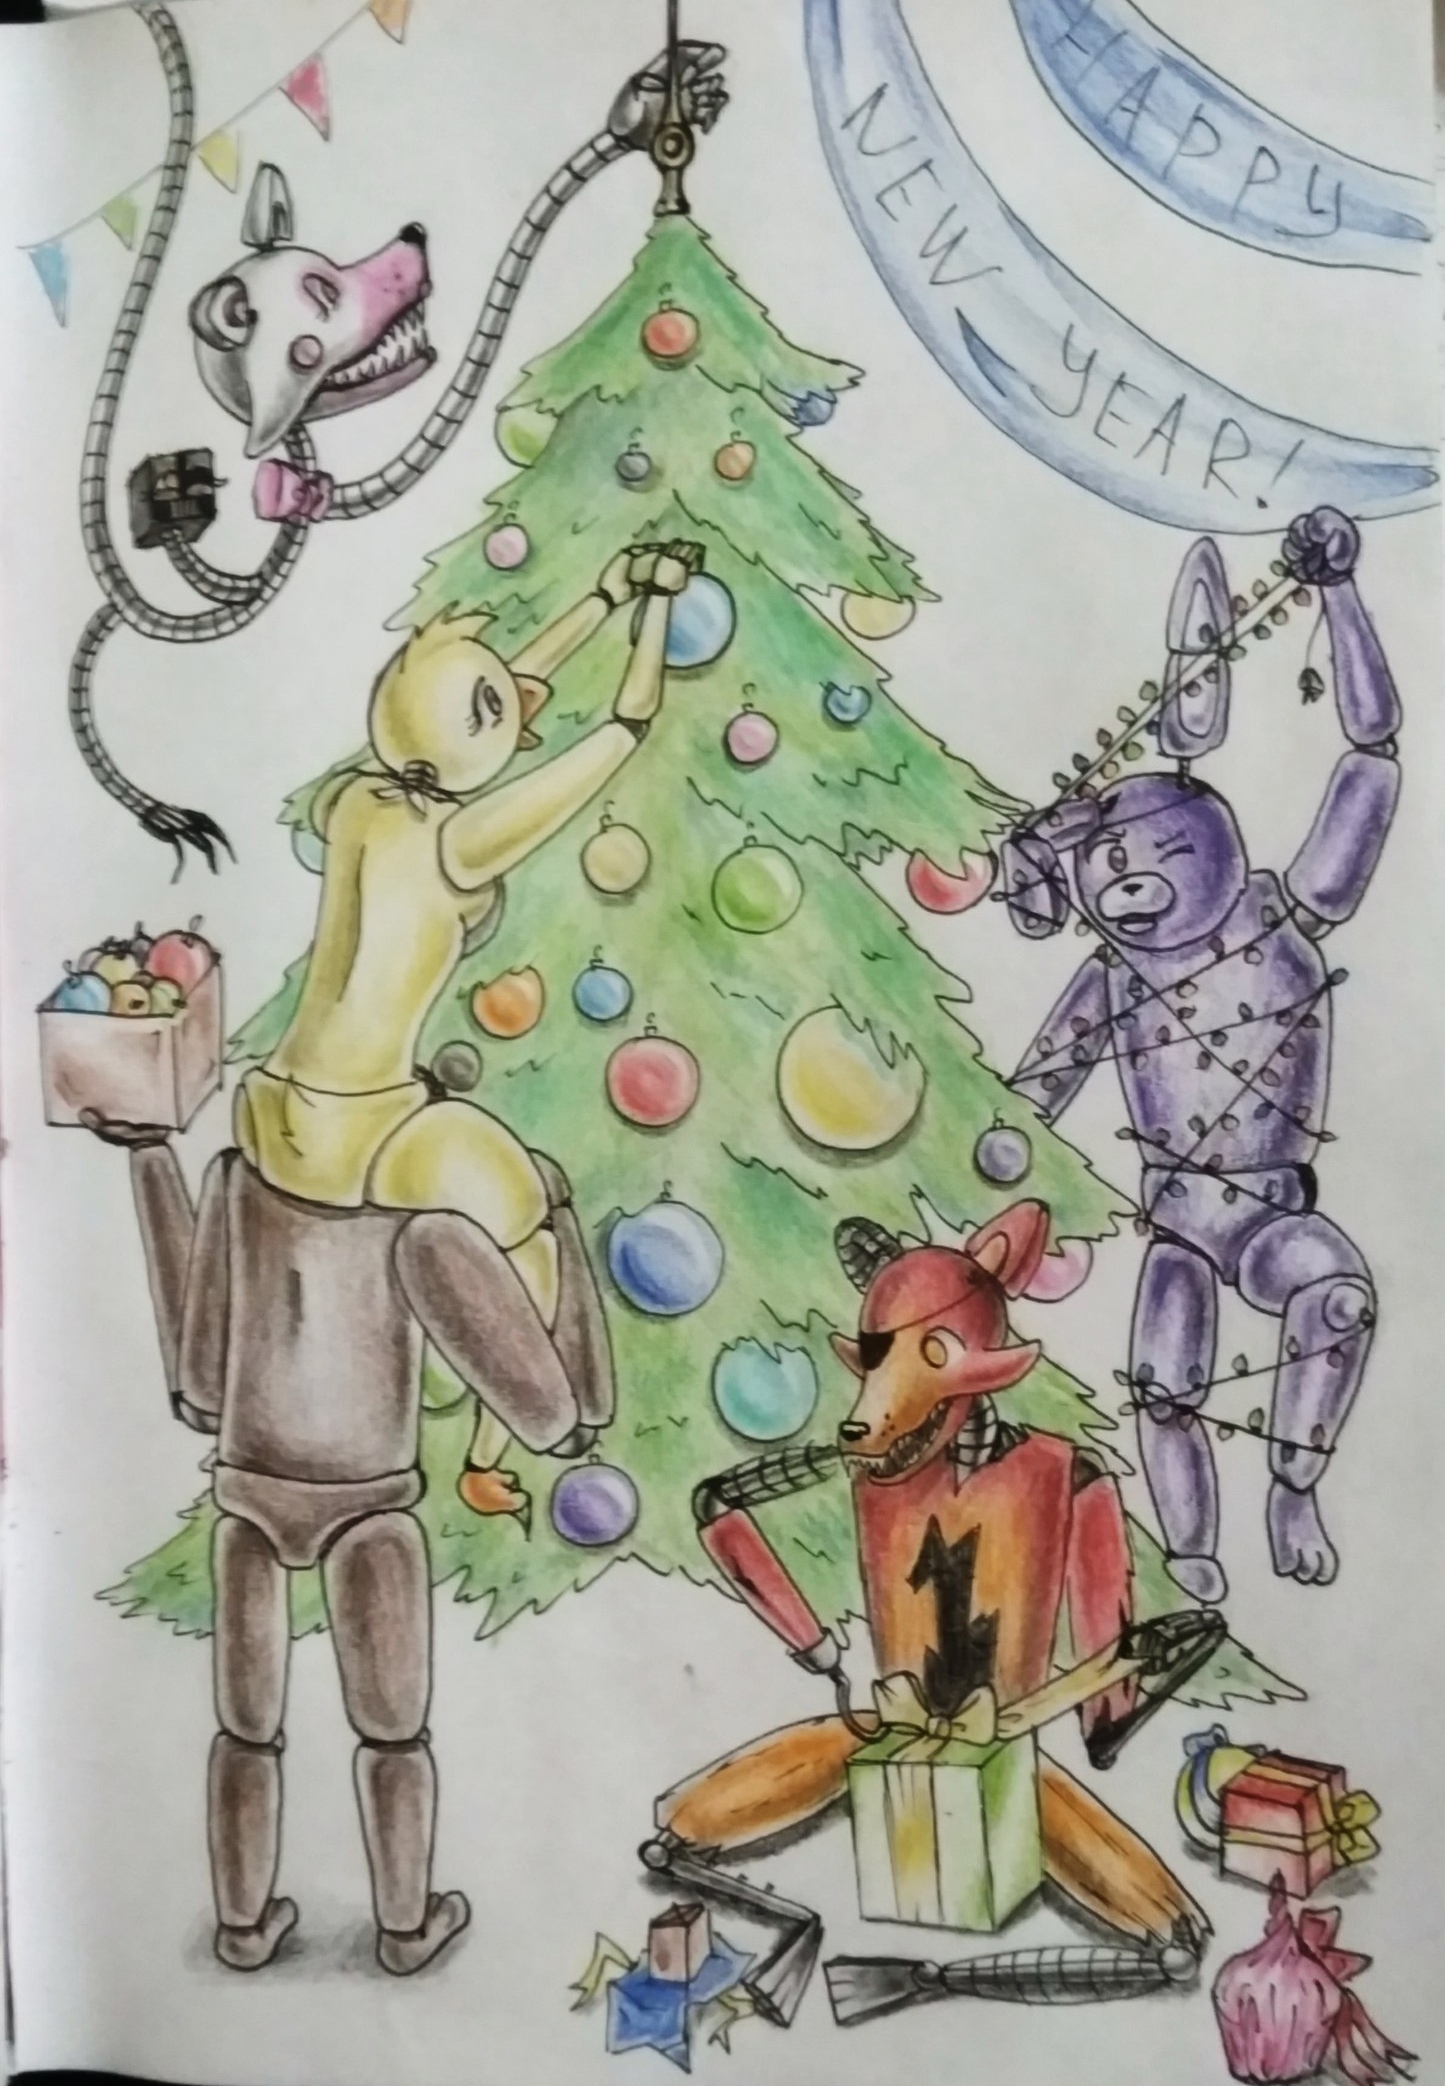 HAPPY
NEW YEAR!
1